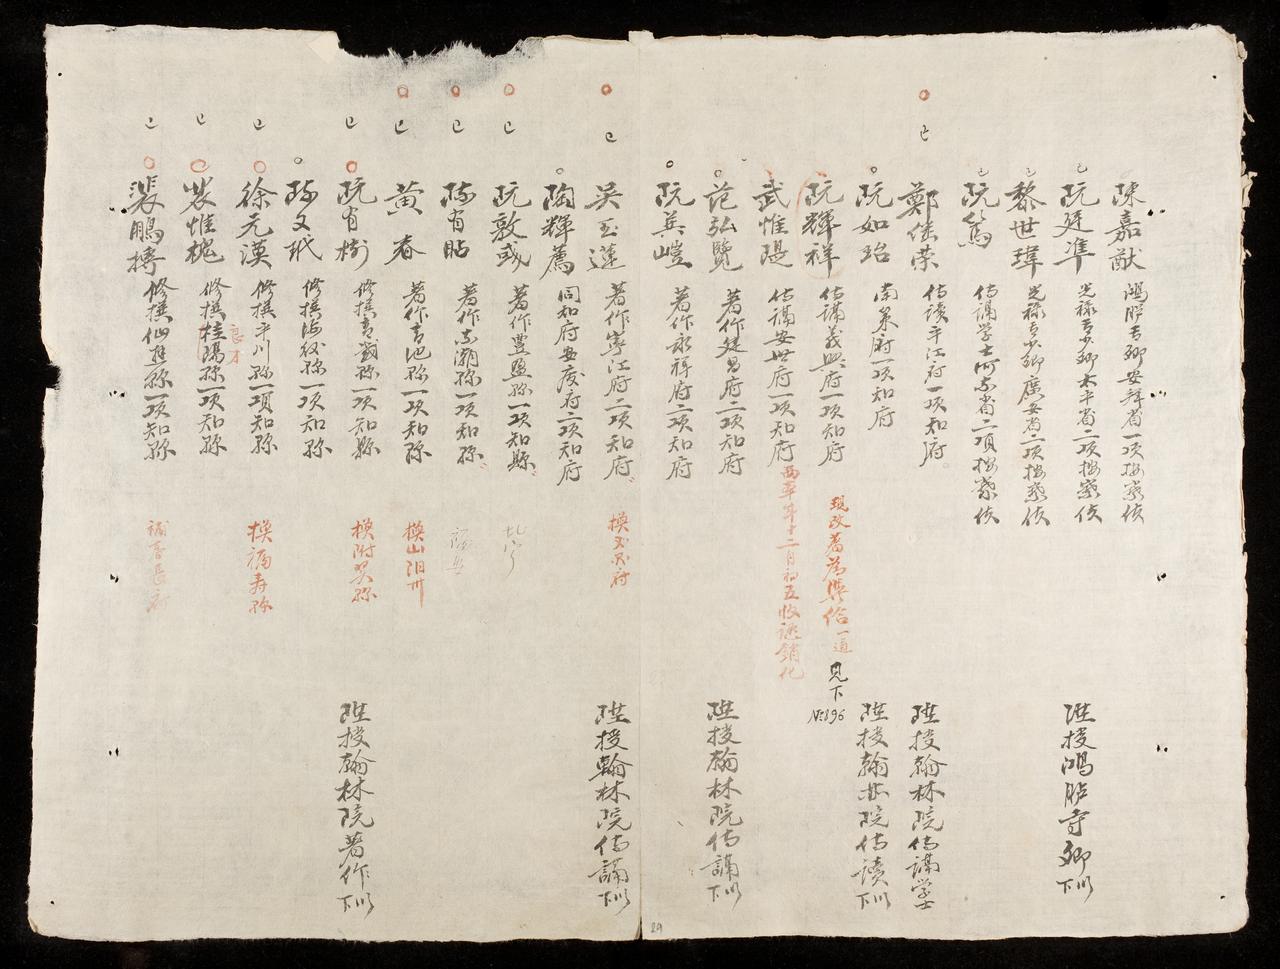 陳嘉猷 鴻臚寺卿安拜省一項按察使
阮廷準 光祿寺少卿太平省二項按察使
陞授鴻臚寺卿下以
黎世瑋 光祿寺少卿廣安省二項按察使
阮篤 侍講學士河南省二項按察使
巳
鄭 榮 侍讀平江府一項知府
陞授翰林院侍講學士
阮如玿 南策府一項知府
陞授翰林院侍讀下以
阮輝祥 侍講義興府一項知府
現改著為 給一道
見下
№196
武惟 侍講安世府一項知府
年十二月初五收 銷化
范弘覽 著作建昌府二項知府
陞授翰林院侍講下以
阮 著作永祥府二項知府
吳玉蓮 著作寧江府二項知府
巳
換 府
陞授翰林院侍講下以
陶輝 同知府安慶府二項知府
巳
阮敦彧 著作豐盈縣一項知縣
巳
有 著作 縣一項知縣
巳
黃春 著作青池縣一項知縣
換山 州
巳
阮有樹 修撰青威縣一項知縣
換附翼縣
陞授翰林院著作下以
文 修撰海後縣一項知縣
巳
徐元漠 修撰平川縣一項知縣
換福壽縣
巳
裴惟 修撰桂陽縣一項知縣
良才
巳
裴鵬摶 修撰仙遊縣一項知縣
補 長府
29